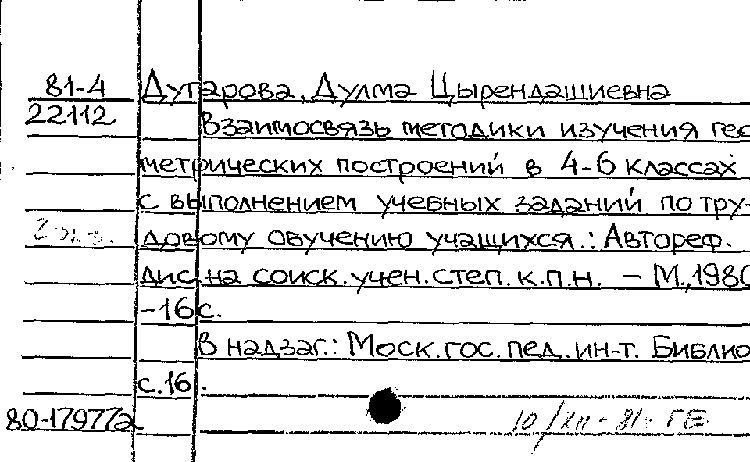 81-4 Дугарова, Дулма Цырендашиевна
22112
Взаимосвязь методики изучения гео
метрических построений в 4-6 классах
с выполнением учебных заданий по тру-
2 экз. довому обучению учащихся.: Автореф.
дис.на соиск.учен.степ.к.п.н. – М.,1980
-16 с.
В надзаг.: Моск.гос.пед.ин-т. Библио
с.16.
80-17977а
10/XII-81- ГЕ